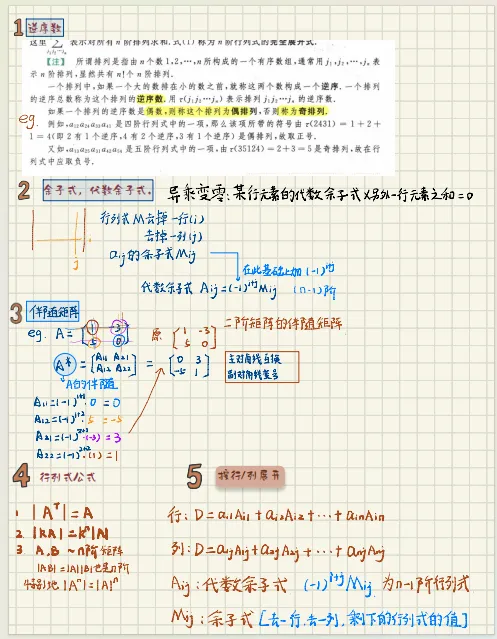 1 逆序数
这里 Σ 表示对所有 n 阶排列求和.式(1)称为 n 阶行列式的完全展开式.
j₁j₂⋯jₙ
【注】 所谓排列是指由 n 个数 1,2,⋯,n 所构成的一个有序数组,通常用 j₁,j₂,⋯,jₙ 表
示 n 阶排列,显然共有 n! 个 n 阶排列.
一个排列中,如果一个大的数排在小的数之前,就称这两个数构成一个逆序.一个排列
的逆序总数称为这个排列的逆序数.用 τ(j₁j₂⋯jₙ) 表示排列 j₁j₂⋯jₙ 的逆序数.
如果一个排列的逆序数是偶数,则称这个排列为偶排列,否则称为奇排列.
eg.
例如,a₁₂a₂₄a₃₃a₄₁ 是四阶行列式中的一项,那么该项所带的符号由 τ(2431) = 1 + 2 +
1 = 4(即 2 有 1 个逆序,4 有 2 个逆序,3 有 1 个逆序)是偶排列,故取正号.
又如,a₁₃a₂₅a₃₁a₄₂a₅₄ 是五阶行列式中的一项,由 τ(35124) = 2+3 = 5 是奇排列,故在行
列式中应取负号.
2 余子式，代数余子式。 异乘变零:某行元素的代数余子式×另外一行元素之和=0
行列式M去掉一行(i)
去掉一列(j)
j
aij的余子式Mij
在此基础上加(-1)^i+j
代数余子式 Aij=(-1)^i+j Mij (n-1)阶
3 伴随矩阵
eg. A = [1 -3
5 0] 原 [1 -3
5 0] 二阶矩阵的伴随矩阵
A* = [A11 A21
A12 A22] = [0 3
-5 1] 主对角线互换
副对角线变号
A的伴随
A11=(-1)^1+1·0 = 0
A12=(-1)^1+2·5 = -5
A21=(-1)^2+1·(-3) = 3
A22=(-1)^2+2·(1) = 1
4 行列式公式
1 |Aᵀ| = A
2. |kA| = kⁿ|A|
3 A.B ~ n阶矩阵
|AB|=|A||B| 也是n阶
特别地 |Aⁿ|=|A|ⁿ
5 按行/列展开
行: D = ai1Ai1 + ai2Ai2 + ⋯ + ainAin
列: D = a1jA1j + a2jA2j + ⋯ + anjAnj
Aij: 代数余子式 (-1)^i+j Mij 为n-1阶行列式
Mij: 余子式 [去一行.去一列.剩下的行列式的值]